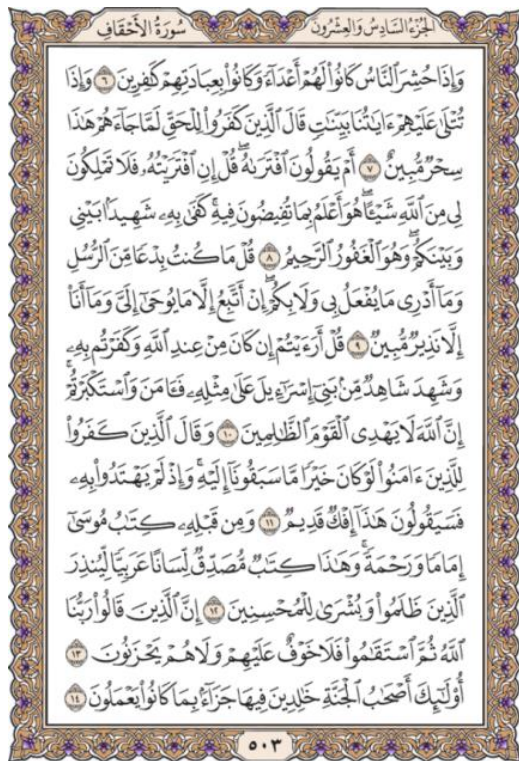 الجزء السادس والعشرون سورة الأحقاف
وَإِذَا حُشِرَ ٱلنَّاسُ كَانُوا۟ لَهُمْ أَعْدَآءً وَكَانُوا۟ بِعِبَادَتِهِمْ كَـٰفِرِينَ ٦ وَإِذَا
تُتْلَىٰ عَلَيْهِمْ ءَايَـٰتُنَا بَيِّنَـٰتٍ قَالَ ٱلَّذِينَ كَفَرُوا۟ لِلْحَقِّ لَمَّا جَآءَهُمْ هَـٰذَا
سِحْرٌ مُّبِينٌ ٧ أَمْ يَقُولُونَ ٱفْتَرَىٰهُ ۖ قُلْ إِنِ ٱفْتَرَيْتُهُۥ فَلَا تَمْلِكُونَ
لِى مِنَ ٱللَّهِ شَيْـًٔا ۖ هُوَ أَعْلَمُ بِمَا تُفِيضُونَ فِيهِ ۖ كَفَىٰ بِهِۦ شَهِيدًۢا بَيْنِى
وَبَيْنَكُمْ ۖ وَهُوَ ٱلْغَفُورُ ٱلرَّحِيمُ ٨ قُلْ مَا كُنتُ بِدْعًا مِّنَ ٱلرُّسُلِ
وَمَآ أَدْرِى مَا يُفْعَلُ بِى وَلَا بِكُمْ ۖ إِنْ أَتَّبِعُ إِلَّا مَا يُوحَىٰٓ إِلَىَّ وَمَآ أَنَا۠
إِلَّا نَذِيرٌ مُّبِينٌ ٩ قُلْ أَرَءَيْتُمْ إِن كَانَ مِنْ عِندِ ٱللَّهِ وَكَفَرْتُم بِهِۦ
وَشَهِدَ شَاهِدٌ مِّنۢ بَنِىٓ إِسْرَٰٓءِيلَ عَلَىٰ مِثْلِهِۦ فَـَٔامَنَ وَٱسْتَكْبَرْتُمْ ۖ
إِنَّ ٱللَّهَ لَا يَهْدِى ٱلْقَوْمَ ٱلظَّـٰلِمِينَ ١٠ وَقَالَ ٱلَّذِينَ كَفَرُوا۟
لِلَّذِينَ ءَامَنُوا۟ لَوْ كَانَ خَيْرًا مَّا سَبَقُونَآ إِلَيْهِ ۚ وَإِذْ لَمْ يَهْتَدُوا۟ بِهِۦ
فَسَيَقُولُونَ هَـٰذَآ إِفْكٌ قَدِيمٌ ١١ وَمِن قَبْلِهِۦ كِتَـٰبُ مُوسَىٰٓ
إِمَامًا وَرَحْمَةً ۚ وَهَـٰذَا كِتَـٰبٌ مُّصَدِّقٌ لِّسَانًا عَرَبِيًّا لِّيُنذِرَ
ٱلَّذِينَ ظَلَمُوا۟ وَبُشْرَىٰ لِلْمُحْسِنِينَ ١٢ إِنَّ ٱلَّذِينَ قَالُوا۟ رَبُّنَا
ٱللَّهُ ثُمَّ ٱسْتَقَـٰمُوا۟ فَلَا خَوْفٌ عَلَيْهِمْ وَلَا هُمْ يَحْزَنُونَ ١٣
أُو۟لَـٰٓئِكَ أَصْحَـٰبُ ٱلْجَنَّةِ خَـٰلِدِينَ فِيهَا جَزَآءًۢ بِمَا كَانُوا۟ يَعْمَلُونَ ١٤
٥٠٣